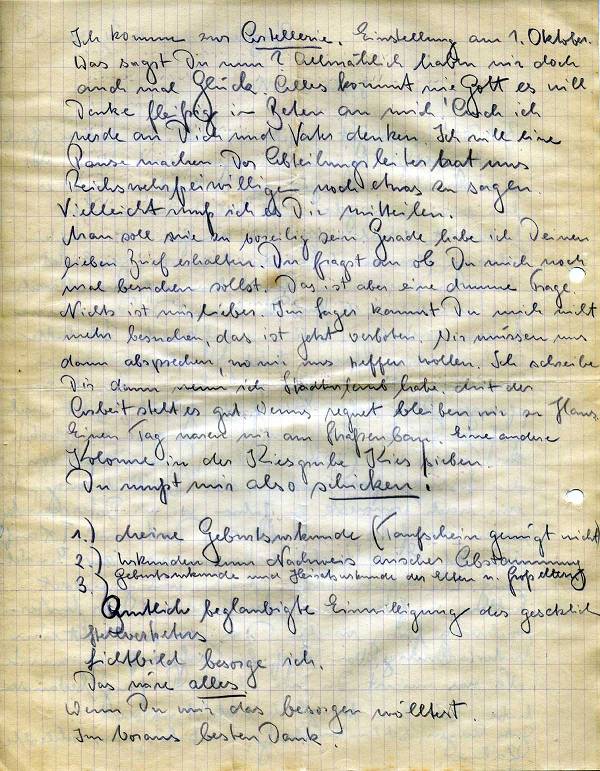 Ich komme zur Artillerie. Einstellung am 1. Oktober.
Was sagst Du nun? Allmählich haben wir doch
auch mal Glück. Alles kommt wie Gott es will
Danke fleißig im Beten an mich! Auch ich
werde an Dich und Vater denken. Ich will eine
Pause machen. Der Abteilungsleiter hat uns
Reichswehrfreiwilligen noch etwas zu sagen.
Vielleicht muß ich es Dir mitteilen.
Man soll nie zu voreilig sein. Gerade habe ich Deinen
lieben Brief erhalten. Du fragst an ob Du mich noch
mal besuchen sollst. Das ist aber eine dumme Frage.
Nichts ist mir lieber. Im Lager kannst Du mich nicht
mehr besuchen, das ist jetzt verboten. Wir müssen uns
dann absprechen, wo wir uns treffen wollen. Ich schreibe
Dir dann wenn ich Stadturlaub habe. Mit der
Arbeit steht es gut. Wenns regnet bleiben wir zu Haus.
Einen Tag waren wir am Straßenbau. Eine andere
Kolonne in der Kiesgrube Kies sieben.
Du mußt mir also schicken!
1.) meine Geburtsurkunde (Taufschein genügt nicht)
2.) Urkunden zum Nachweis arischer Abstammung
Geburtsurkunde und Heiratsurkunde der Eltern u. Großeltern
3.) Amtlich beglaubigte Einwilligung des gesetzlich
Stellvertreters
Lichtbild besorge ich.
Das wäre alles
Wenn Du mir das besorgen wolltest.
Im voraus besten Dank.